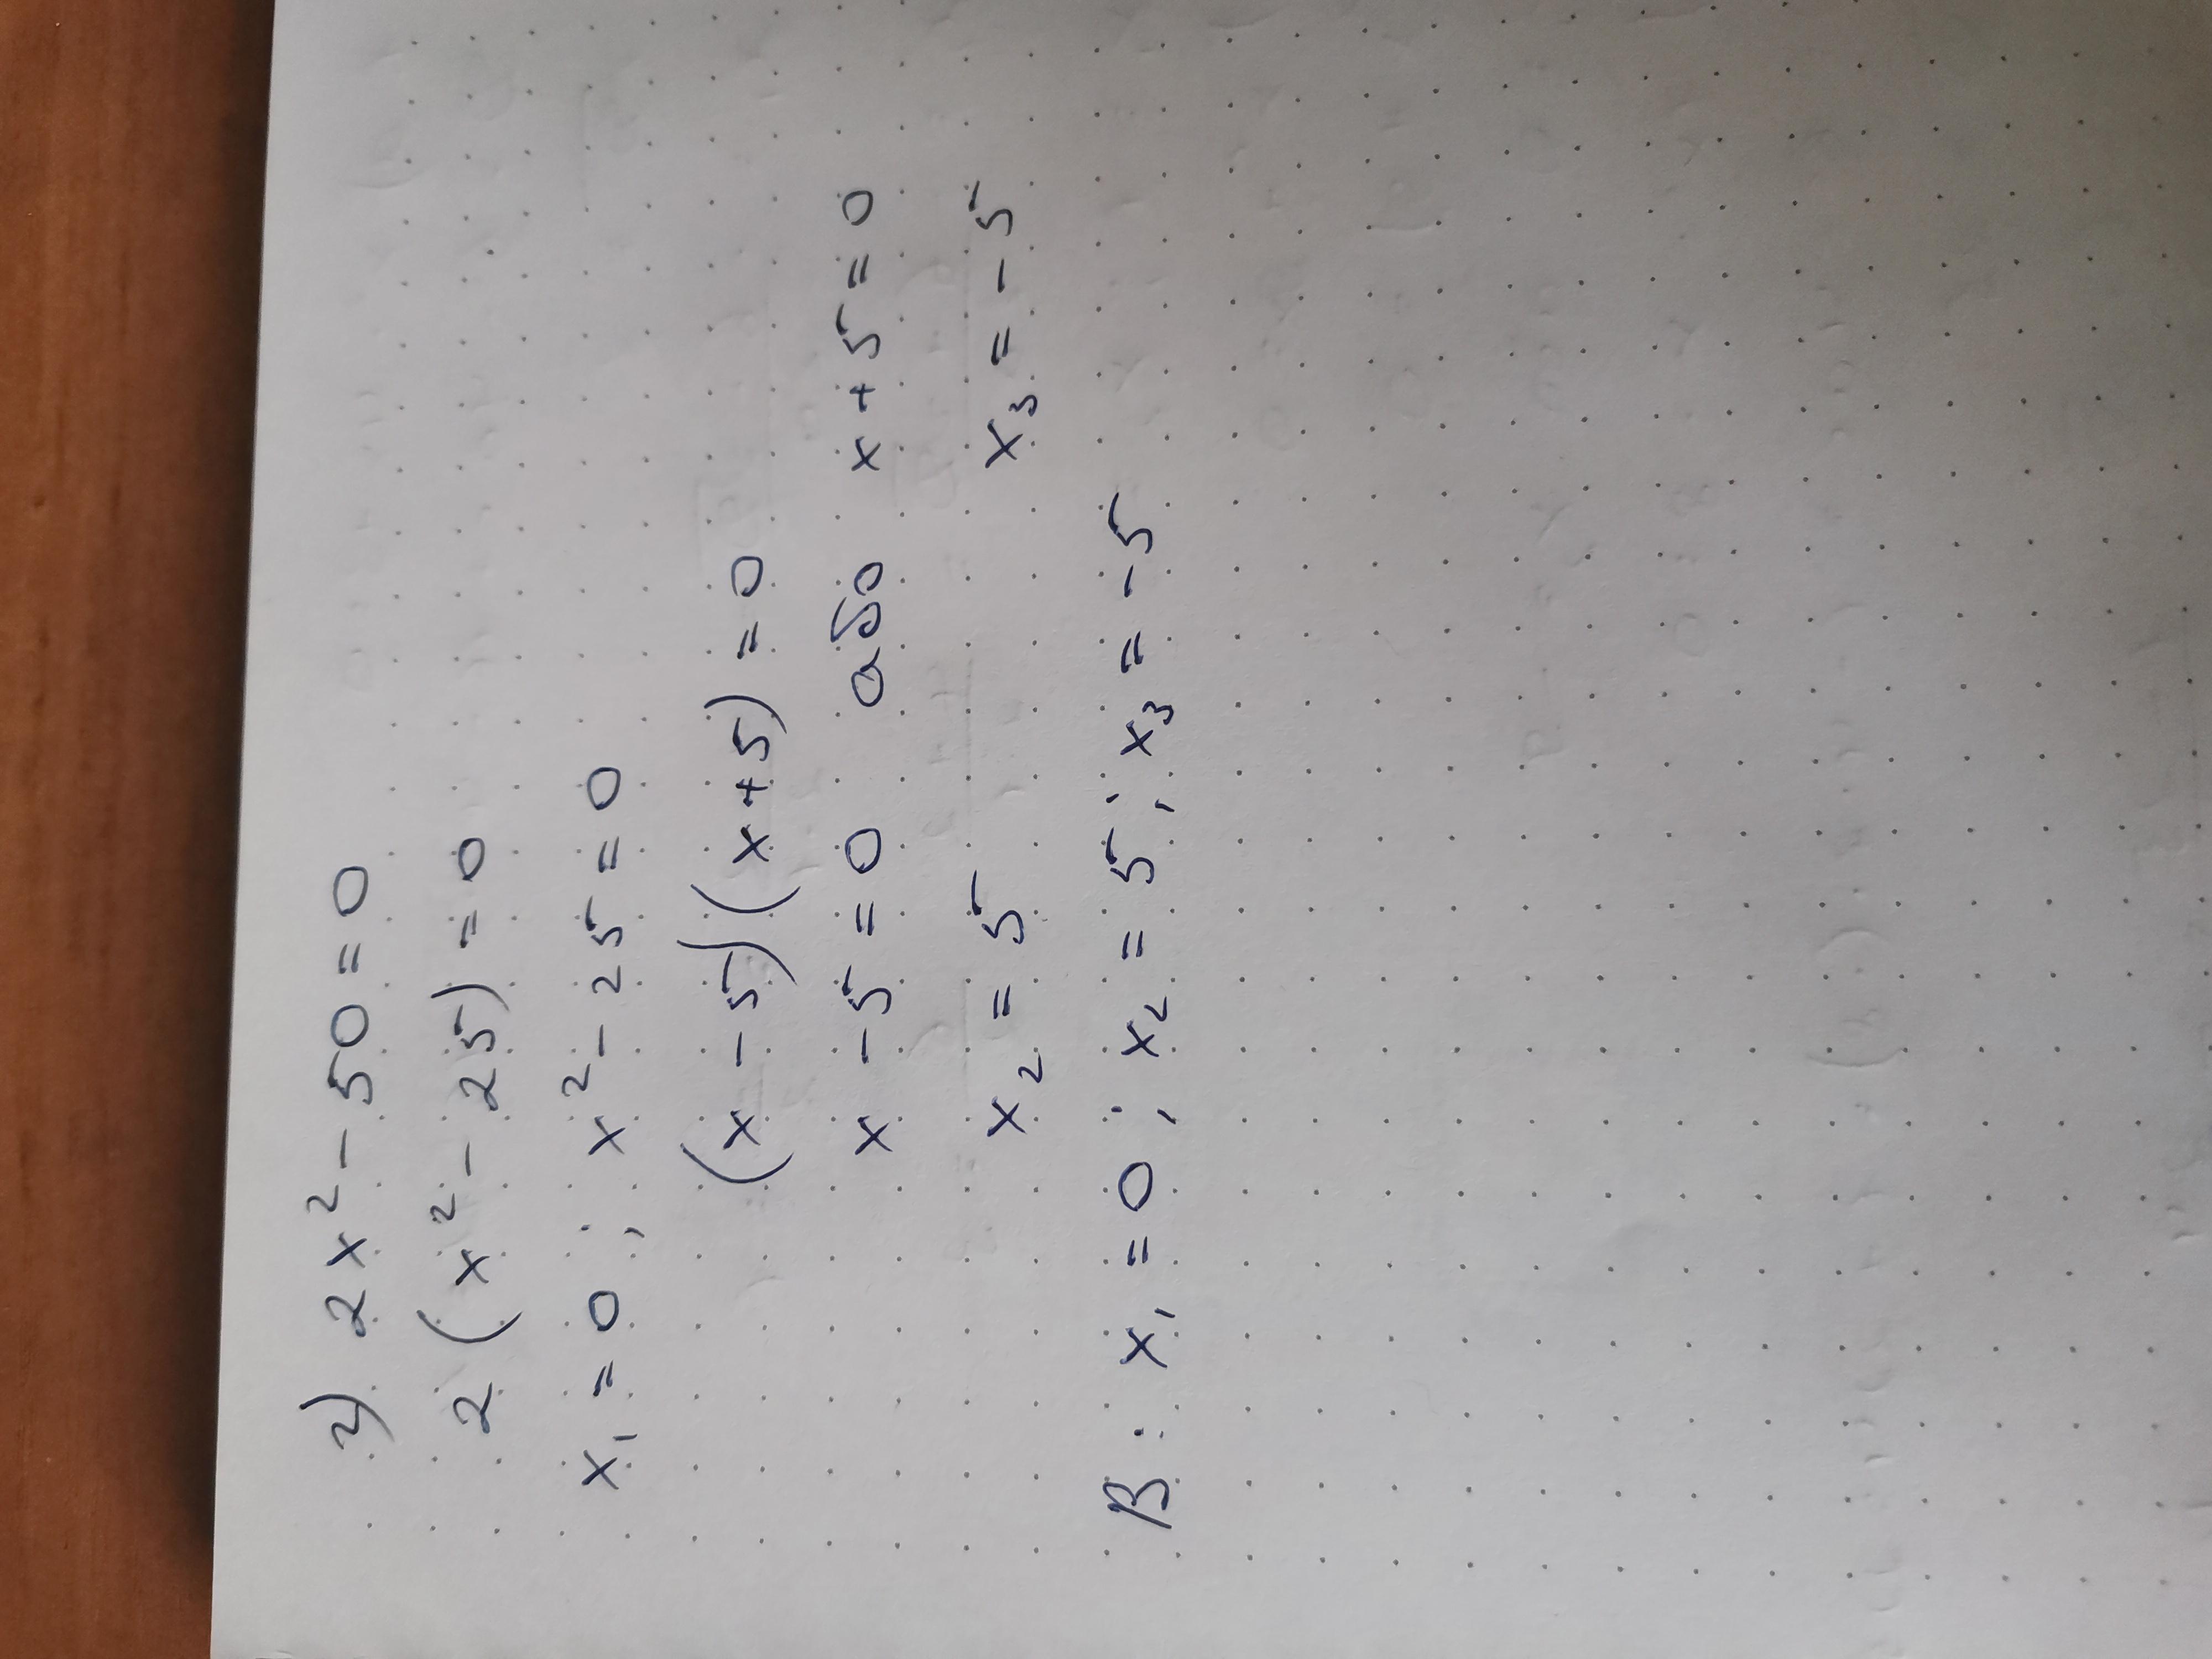 2) 2x² - 50 = 0
2(x² - 25) = 0
x₁ = 0 ; x² - 25 = 0
(x - 5)(x + 5) = 0
x - 5 = 0 або x + 5 = 0
x₂ = 5 x₃ = - 5
В: x₁ = 0 ; x₂ = 5 ; x₃ = - 5